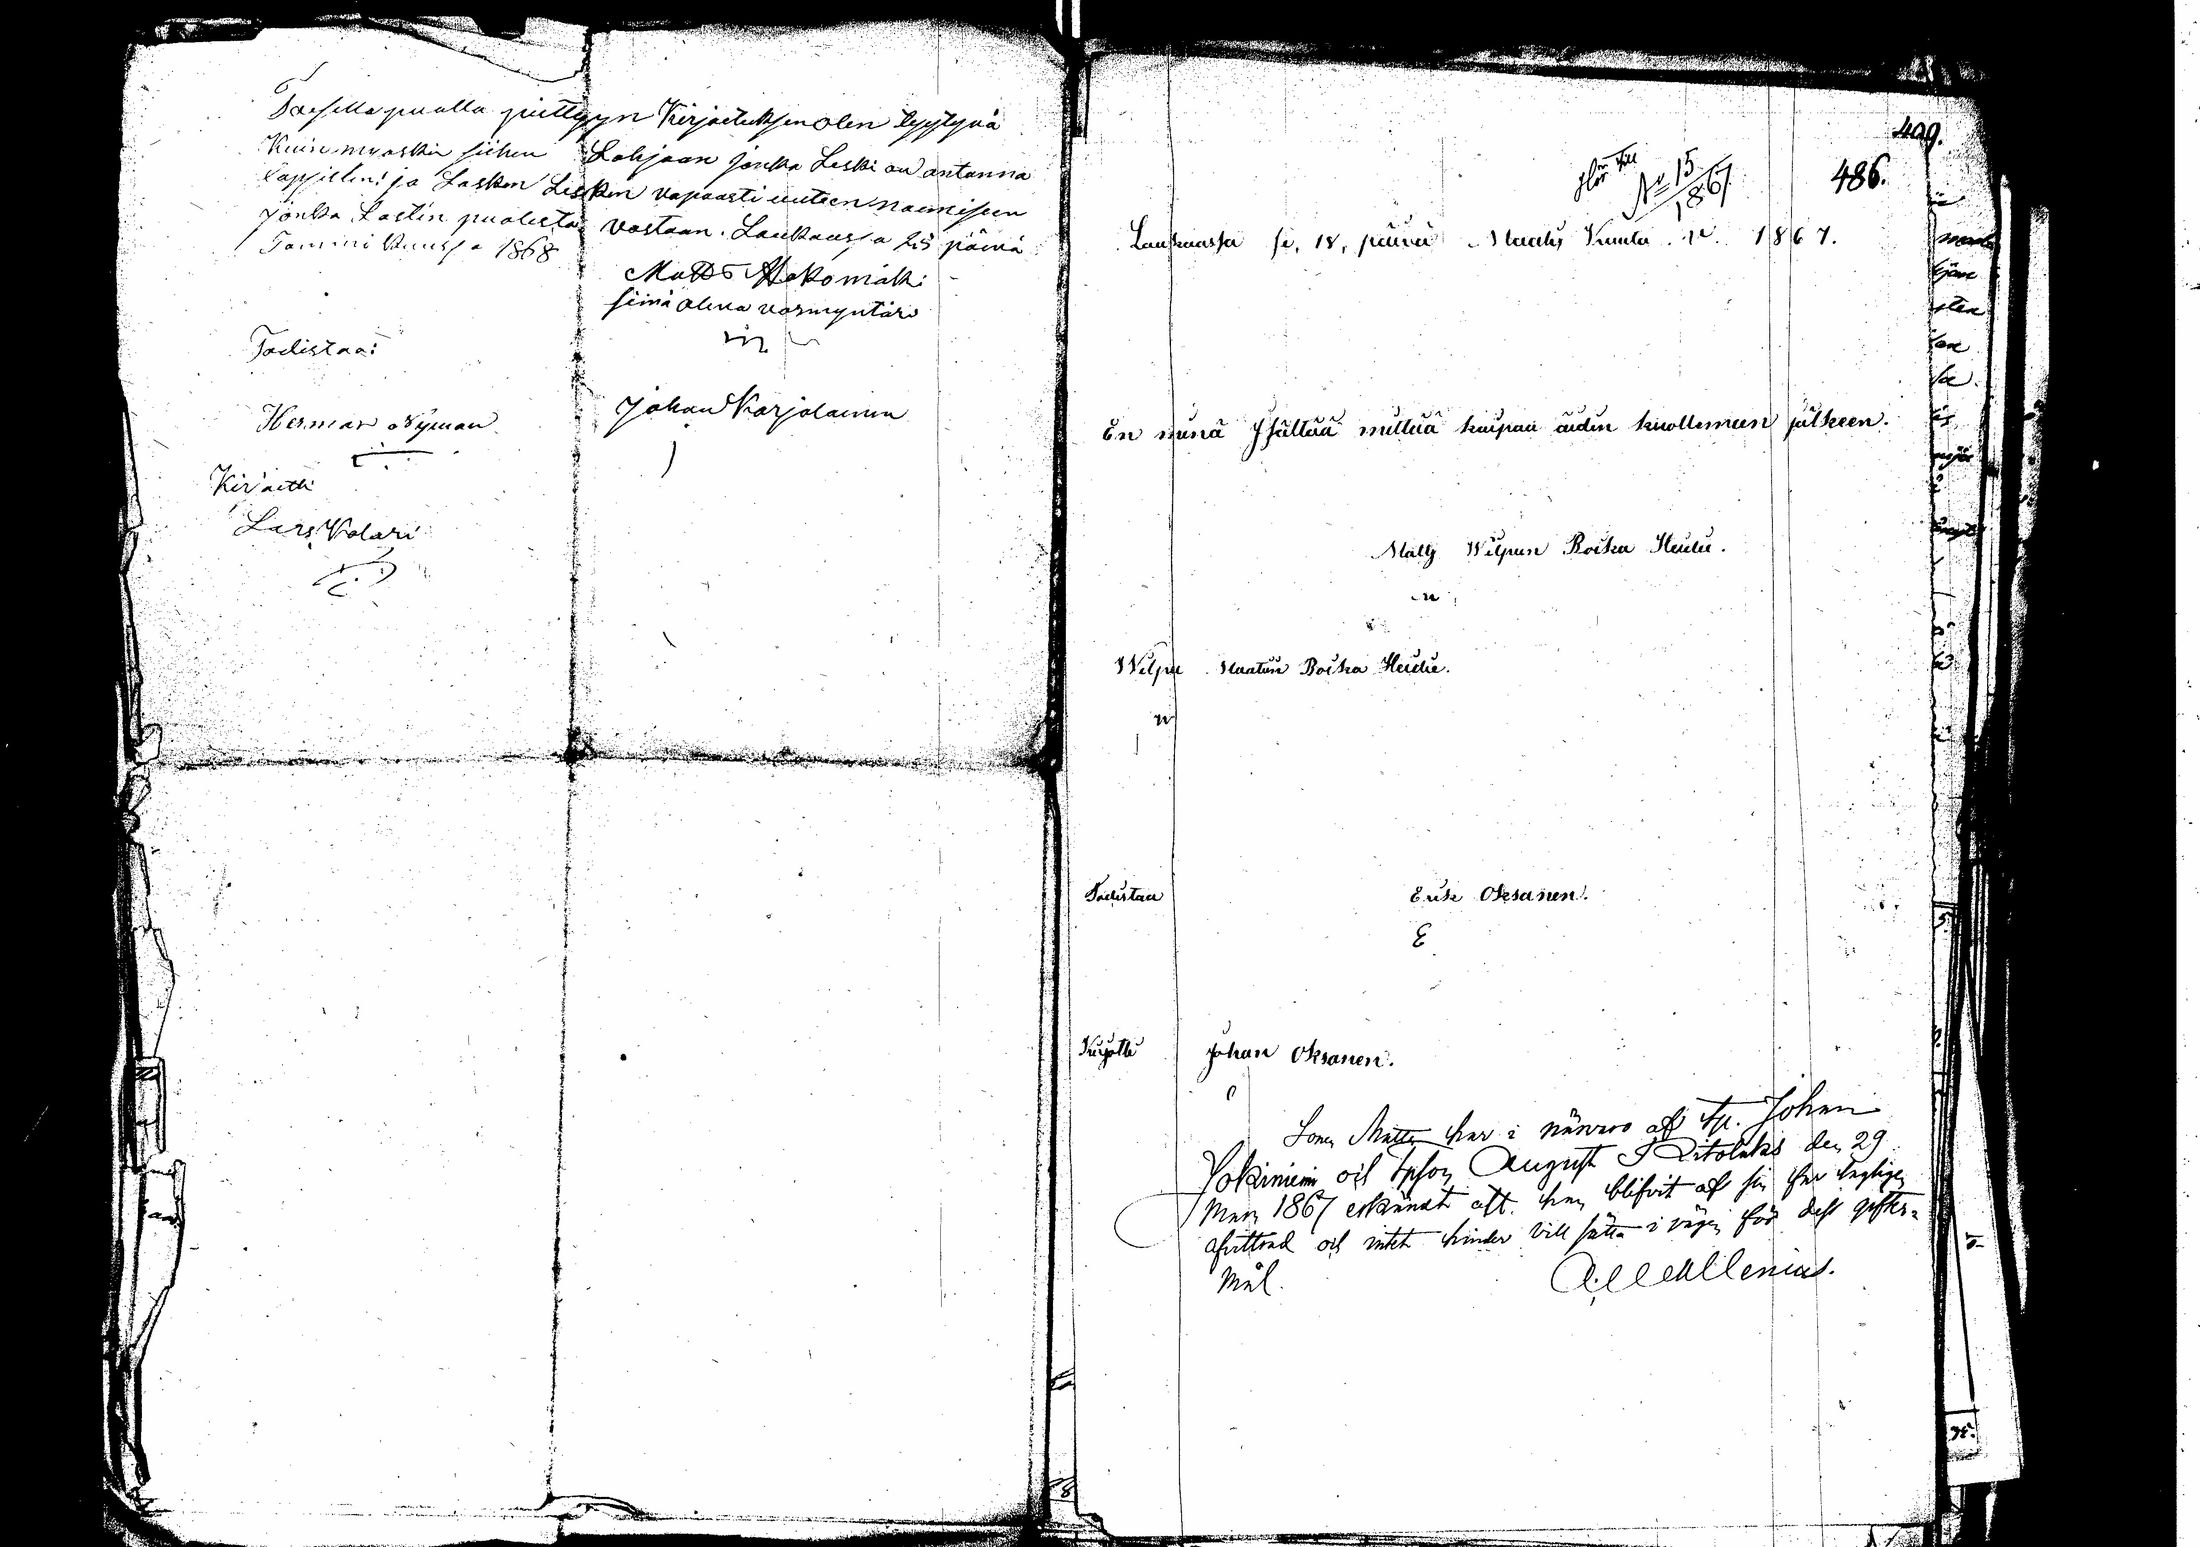 Toesellapuolla pidettyyn Kirjoituksen olen tyytyvä
Kuin myöskin siihen Lahjaan jonka Leski on antanna
Lapsillini ja Lasken Lesken vapaasti uuteen naimiseen
jonka Lastin puolesta vastaan. Laukaassa 25 päivä
Tammi kuussa 1868
Matts Mäkomäki
siinä oleva vormyntäri
Todistaa:
Herman Nyman
Johan Karjalainen
Kirjoitti
Lars Kolari
409.
486.
hör till
No 15/1867
Laukaassa se, 18, päivä Maalis Kuuta. v. 1867.
En minä Isältää mittää kaipaa äidin kuollemeen jälkeen.
Matts Wilpun Poika Heidii.
Wilpu Maatin Poika Heidii.
Todistaa
Erik Oksanen.
E
Kirjotti
Johan Oksanen.
Sonen Matts har i närvaro af Tp. Johan
Jokiniemi och August den 29
Mars 1867 erkändt att han blifvit af sin far lagligen
afvittrad och intet hinder vill sätta i vägen för dess gifter=
mål.